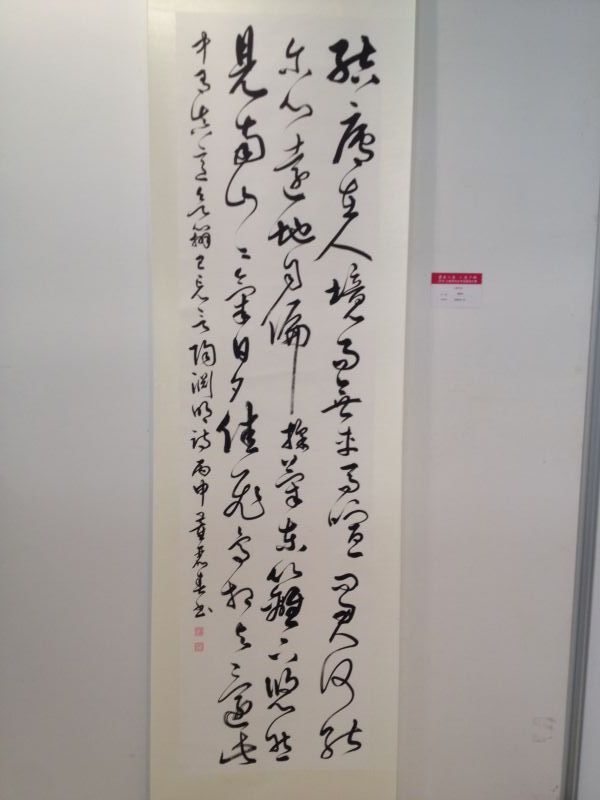 結廬在人境而無車馬喧問君何能
尔心遠地自偏採菊東籬下悠然
見南山〻氣日夕佳飛鳥相与還此
中有真意欲辨已忘言陶淵明詩丙申董春书